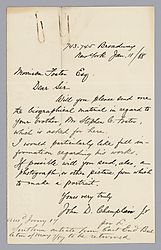 743-745 Broadway
New York Jan. 11/88
Morrison Foster Esq.
Dear Sir:
Will you please send me
the biographical material in regard to
your brother, Mr Stephen C. Foster
which is asked for here.
I would particularly like full in-
formation regarding his works.
If possible, will you send, also, a
photograph, or other picture from which
to make a portrait.
Yours very truly
John D. Champlin Jr